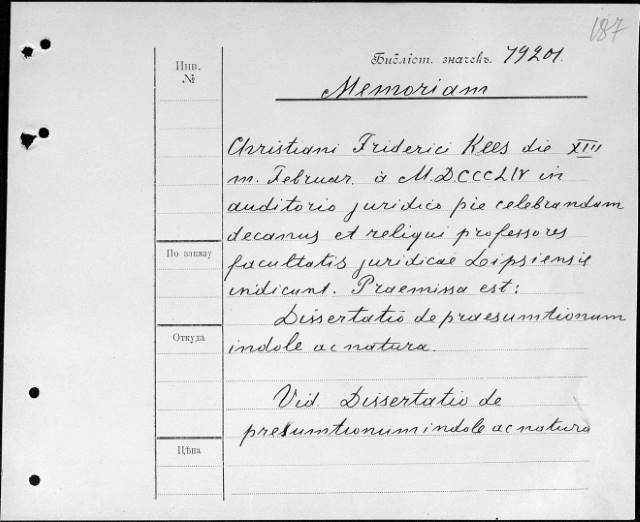 187
Инв.
№
Библіот. значекъ. 79201.
Memoriam
Christiani Friderici Kees die XIII
m. Februar. à M.DCCCLIV in
auditorio juridico pie celebrandam
decanus et reliqui professores
По заказу
facultatis juridicae Lipsiensis
indicunt. Praemissa est:
Dissertatio de praesumtionum
Откуда
indole ac natura.
Vid. Dissertatio de
presumtionum indole ac natura
Цѣна